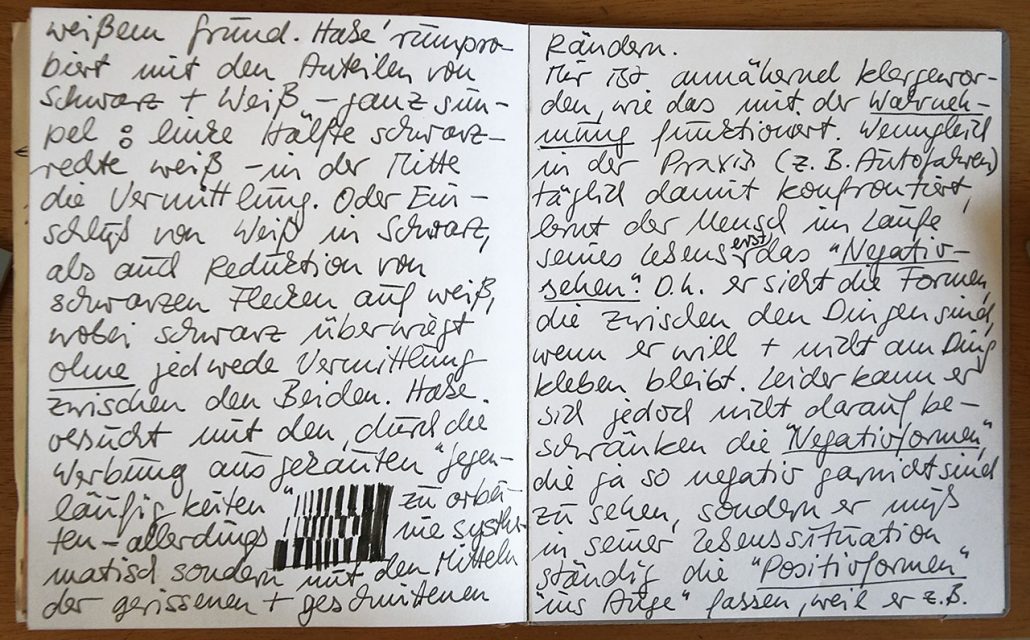 weißem Grund. Habe rumpro-
biert mit den Anteilen von
Schwarz + Weiß – ganz sim-
pel: linke Hälfte schwarz –
rechte weiß – in der Mitte
die Vermittlung. Oder Ein-
schluß von Weiß in Schwarz,
als auch Reduktion von
schwarzen Flecken auf weiß,
wobei schwarz überwiegt
ohne jedwede Vermittlung
zwischen den Beiden. Habe
versucht mit den, durch die
Werbung ausgekauten "Gegen-
läufigkeiten" zu arbei-
ten – allerdings nie syste-
matisch sondern mit den Mitteln
der gerissenen + geschnittenen
Rändern.
Mir ist annähernd klargewor-
den, wie das mit der Wahrneh-
mung funktioniert. Wenngleich
in der Praxis (z. B. Autofahren)
täglich damit konfrontiert,
lernt der Mensch im Laufe
seines Lebens erst das "Negativ-
sehen". D.h. er sieht die Formen,
die zwischen den Dingen sind,
wenn er will + nicht am Ding
kleben bleibt. Leider kann er
sich jedoch nicht darauf be-
schränken die "Negativformen",
die ja so negativ garnicht sind
zu sehen, sondern er muß
in seiner Lebenssituation
ständig die "Positivformen"
"ins Auge" fassen, weil er z.B.